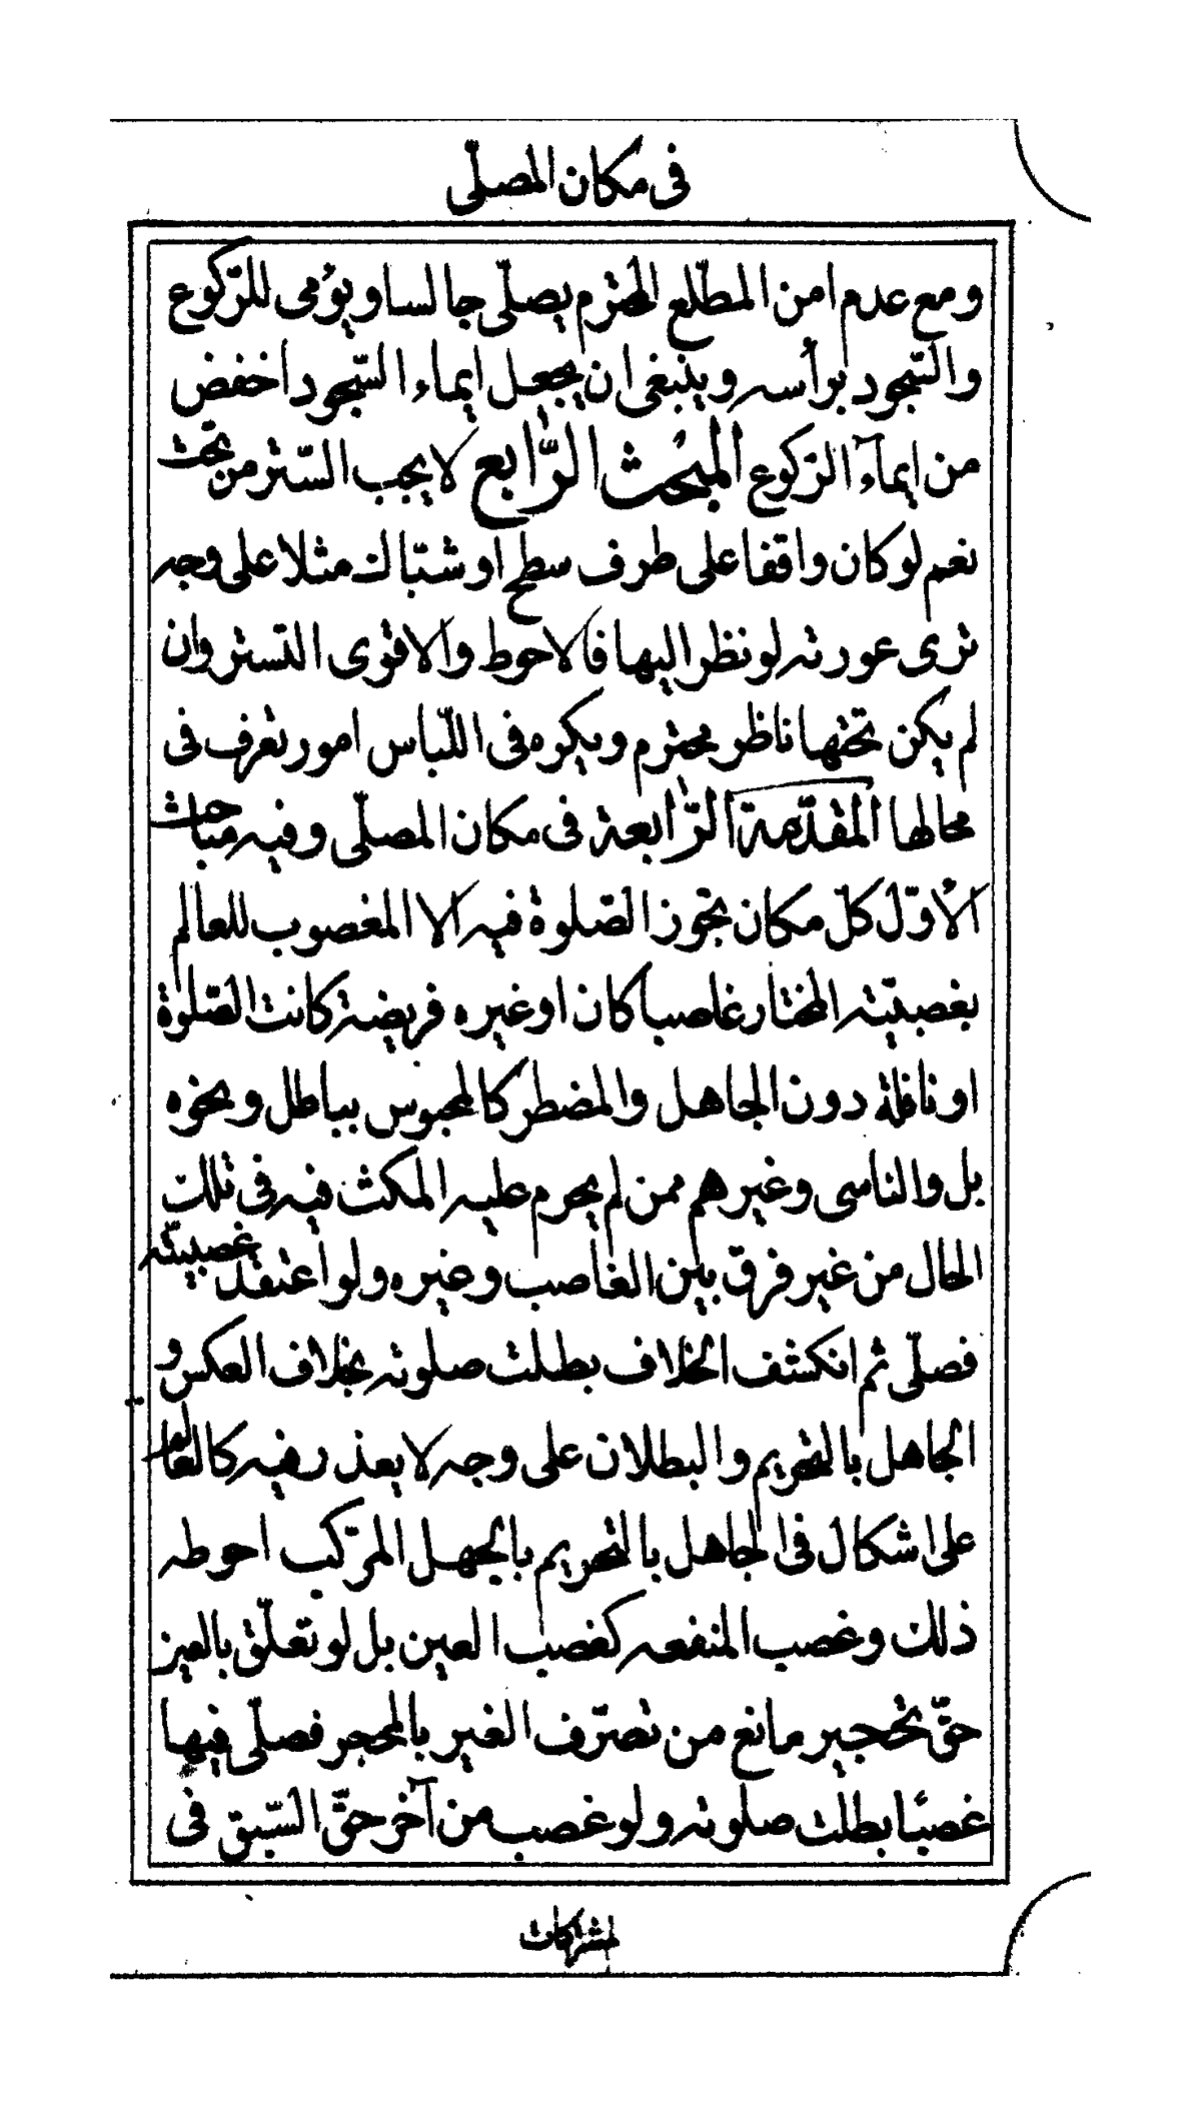 فى مكان المصلّى
ومع عدم امن المطّلع المحترم يصلّى جالسا ويؤمى للرّكوع
والسّجود برأسه وينبغى ان يجعل ايماء السّجود اخفض
من ايمآء الرّكوع المبحث الرّابع لا يجب السّتر من تحت
نعم لو كان واقفا على طرف سطح او شبّاك مثلا على وجه
ترى عورته لو نظر اليها فالاحوط والاقوى التستر وان
لم يكن تحتها ناظر محترم ويكره فى اللّباس امور تعرف فى
محالها المقدّمة الرّابعة فى مكان المصلّى وفيه مباحث
الاوّل كلّ مكان تجوز الصّلوة فيه الا المغصوب للعالم
بغصبيّته المختار غاصبا كان او غيره فريضة كانت الصّلوة
او نافلة دون الجاهل والمضطر كالمحبوس بباطل ونحوه
بل والناسى وغيرهم ممن لم يحرم عليه المكث فيه فى تلك
الحال من غير فرق بين الغاصب وغيره ولو اعتقد غصبيته
فصلّى ثم انكشف الخلاف بطلت صلوته بخلاف العكس و
الجاهل بالتحريم والبطلان على وجه لا يعذر فيه كالعالم
على اشكال فى الجاهل بالتحريم بالجهل المركّب احوطه
ذلك وغصب المنفعه كغصب العين بل لو تعلّق بالعين
حقّ تحجير مانع من تصرّف الغير بالمحجر فصلّى فيها
غصبًا بطلت صلوته ولو غصب من آخر حقّ السّبق فى
لمشتركات